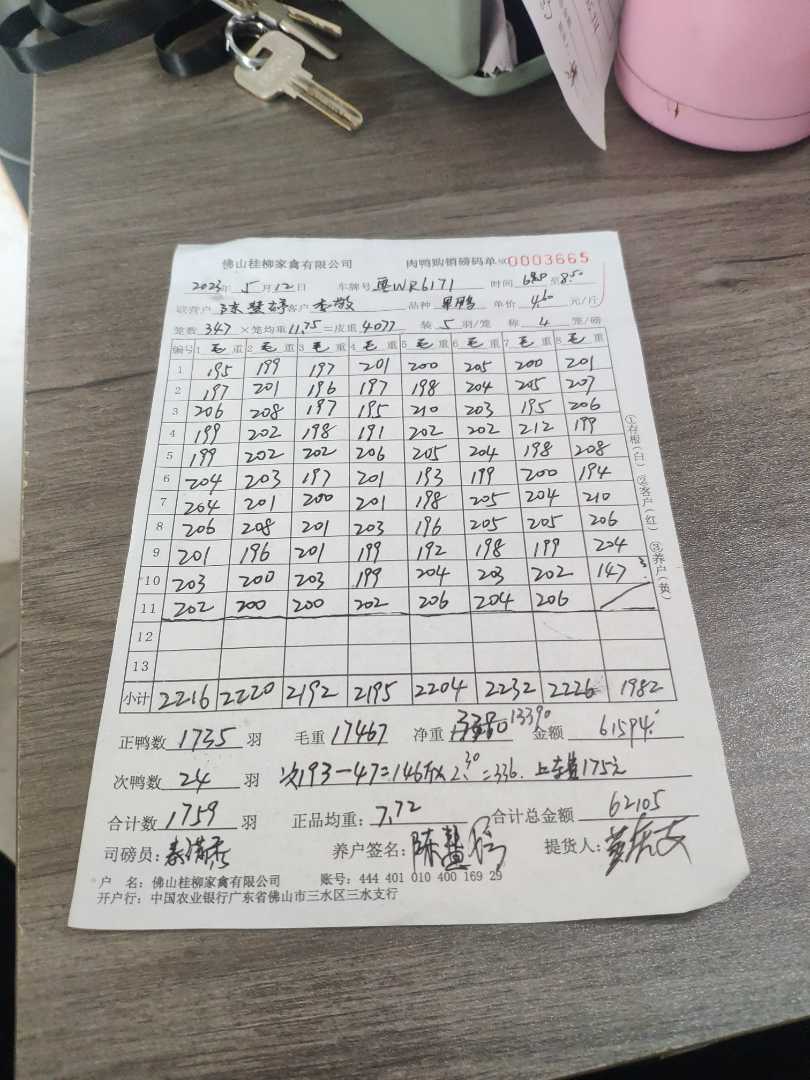 佛山桂柳家禽有限公司 肉鸭购销磅码单 № 0003665
2023年 5月12日 车牌号 粤WR6171 时间 至 8:50
联营户 陈慧 客户 李敬 品种 单价 4.60 元/斤
笼数 347 ×笼均重 11.75 =皮重 4077 装 5 羽/笼 称 4 笼/磅
编号 1 毛 重 2 毛 重 3 毛 重 4 毛 重 5 毛 重 6 毛 重 7 毛 重 8 毛 重
1 195 199 197 201 200 205 200 201
2 197 201 196 197 198 204 205 207
3 206 208 197 195 210 203 195 206
4 199 202 198 191 202 202 212 199
5 199 202 202 206 205 204 198 208
6 204 203 197 201 193 199 200 194
7 204 201 200 201 198 205 204 210
8 206 208 201 203 196 205 205 206
9 201 196 201 199 192 198 199 204
10 203 200 203 199 204 203 202 147
11 202 200 200 202 206 204 206
12
13
小计 2216 2220 2192 2195 2204 2232 2226 1982
①存根(白) ②客户(红) ③养户(黄)
正鸭数 1735 羽 毛重 17467 净重 13390 金额 61594
次鸭数 24 羽 次193-47=146斤×2.30=336. 上车费175元
合计数 1759 羽 正品均重: 7.72 合计总金额 62105
司磅员: 养户签名: 陈慧 提货人:
户 名: 佛山桂柳家禽有限公司 账号: 444 401 010 400 169 29
开户行: 中国农业银行广东省佛山市三水区三水支行